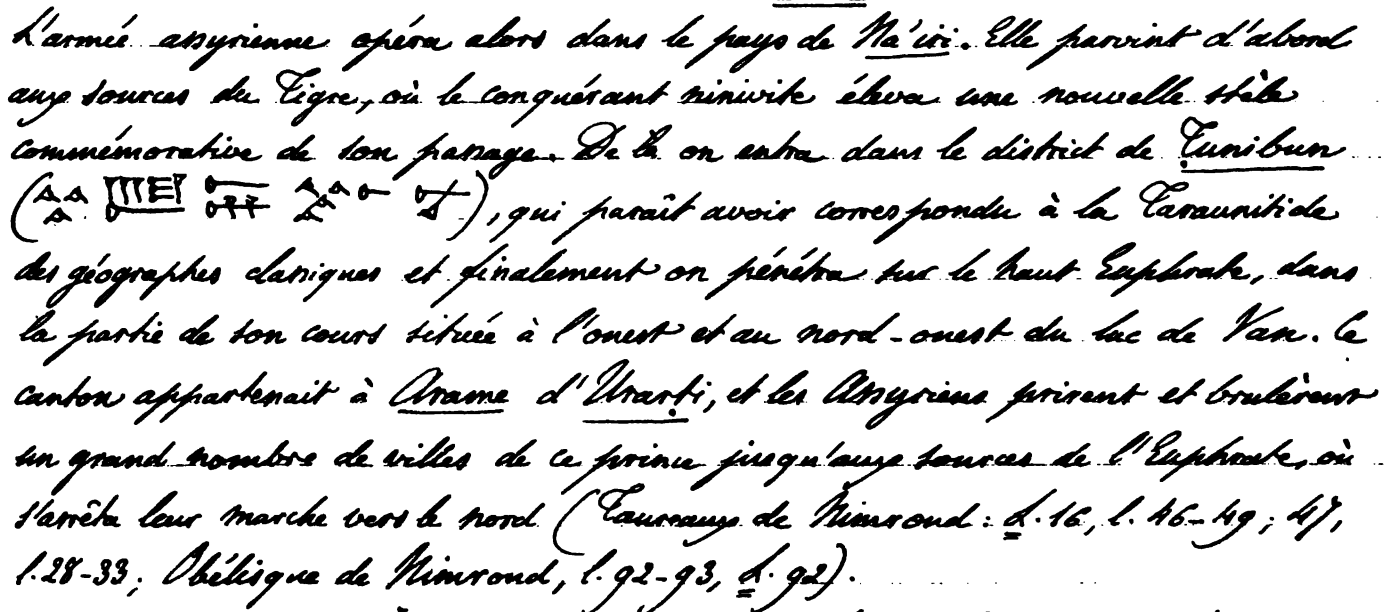 L'armée assyrienne opéra alors dans le pays de Na'iri. Elle parvint d'abord
aux sources du Tigre, où le conquérant ninivite éleva une nouvelle stèle
commémorative de son passage. De là on entra dans le district de Ṭunibun
(), qui paraît avoir correspondu à la Taraunitide
des géographes classiques et finalement on pénétra sur le haut Euphrate, dans
la partie de son cours située à l'ouest et au nord-ouest du lac de Van. Ce
canton appartenait à Arame d'Urarṭi, et les Assyriens prirent et brulèrent
un grand nombre de villes de ce prince jusqu'aux sources de l'Euphrate, où
s'arrêta leur marche vers le nord (Taureaux de Nimroud: L. 16, l. 46-49; 47,
l. 28-33; Obélisque de Nimroud, l. 92-93, L. 92).